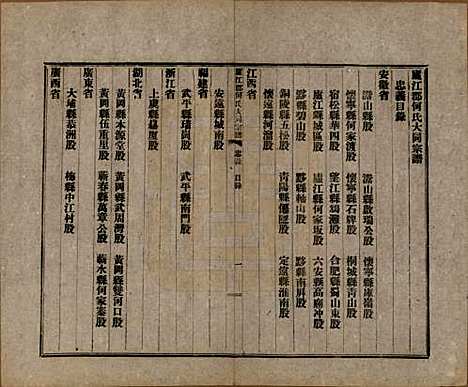 廬江郡何氏大同宗譜
忠義目錄
安徽省
潛山縣股 潛山縣啟瑞公股 懷寧縣 股
懷寧縣何家渡股 懷寧縣石牌股 桐城縣青山股
宿松縣華四股 望江縣 股 合肥縣蜀山東股
廬江縣城區股 廬江縣何家坂股 六安縣高廟冲股
黟縣碧山股 黟縣 山股 黟縣南屏股
銅陵縣五松股 青陽縣 股 定遠縣淮南股
懷遠縣河溜股
江西省
廬江郡何氏大同宗譜 忠義 目錄 一
安遠縣城南股
福建省
武平縣 股 武平縣南門股
浙江省
上虞縣 股
湖北省
黃岡縣水源堂股 黃岡縣武周灣股 黃岡縣雙河口股
黃岡縣伍重里股 蘄春縣萬章公股 蘄水縣何家寨股
廣東省
大埔縣 洲股 梅縣中江村股
廣西省